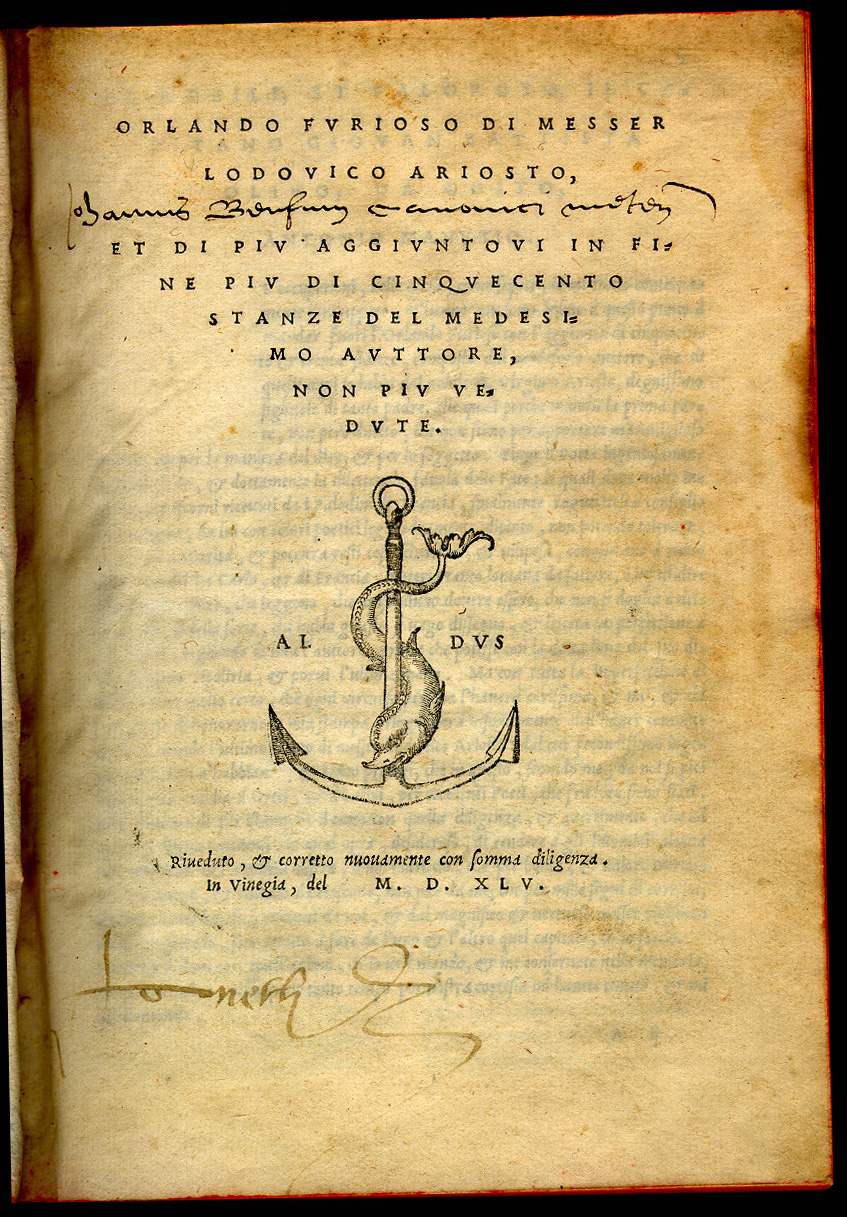 ORLANDO FVRIOSO DI MESSER
LODOVICO ARIOSTO,
Johannis canonici meten
ET DI PIV AGGIVNTOVI IN FI=
NE PIV DI CINQVECENTO
STANZE DEL MEDESI=
MO AVTTORE,
NON PIV VE=
DVTE.
AL DVS
Riueduto, & corretto nuouamente con ſomma diligenza.
In Vinegia, del M. D. XLV.